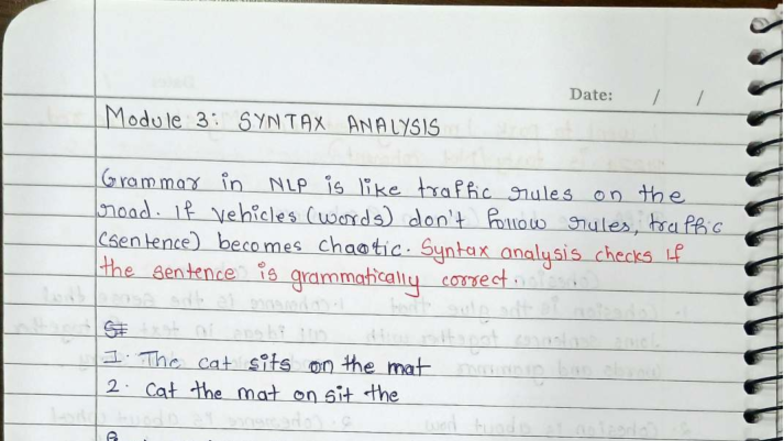 Date: / /
Module 3: SYNTAX ANALYSIS
Grammar in NLP is like traffic rules on the
road. If vehicles (words) don't follow rules, traffic
(sentence) becomes chaotic. Syntax analysis checks if
the sentence is grammatically correct.
1. The cat sits on the mat
2. Cat the mat on sit the